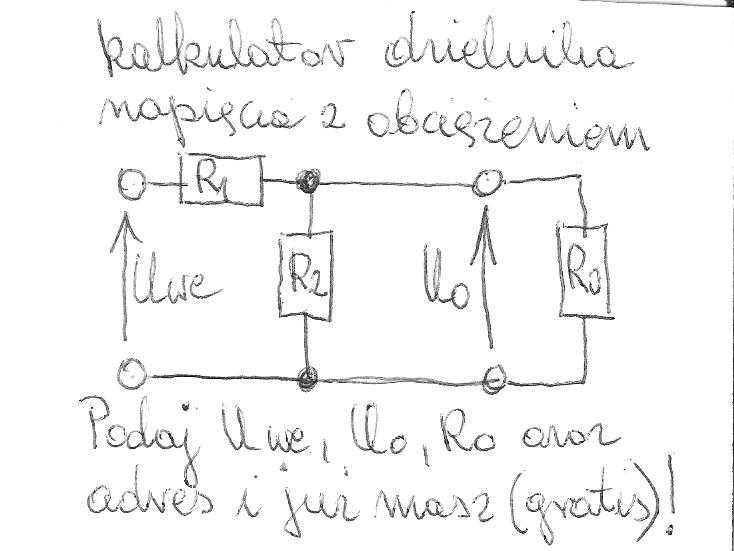 kalkulator dzielnika
napięcia z obciążeniem
R1
R2
Uwe
Uo
Ro
Podaj Uwe, Uo, Ro oraz
adres i już masz (gratis)!